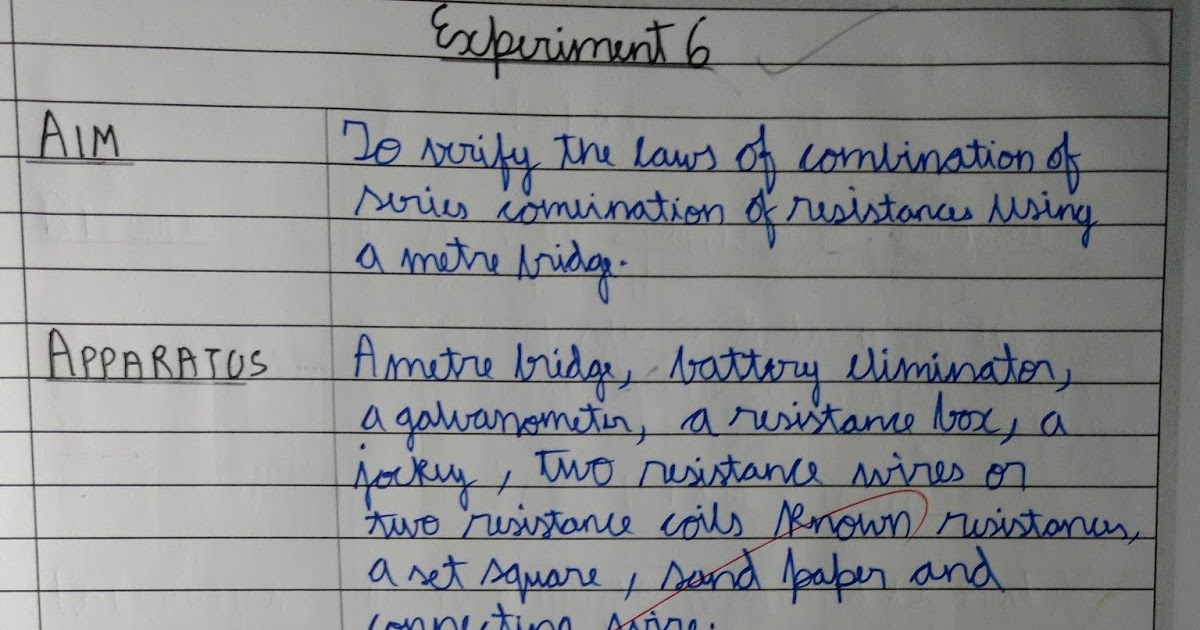 Experiment 6
AIM
To verify the laws of combination of
series combination of resistances using
a metre bridge.
APPARATUS
A metre bridge, battery eliminator,
a galvanometer, a resistance box, a
jockey, two resistance wires or
two resistance coils known resistances,
a set square, sand paper and
connecting wire.